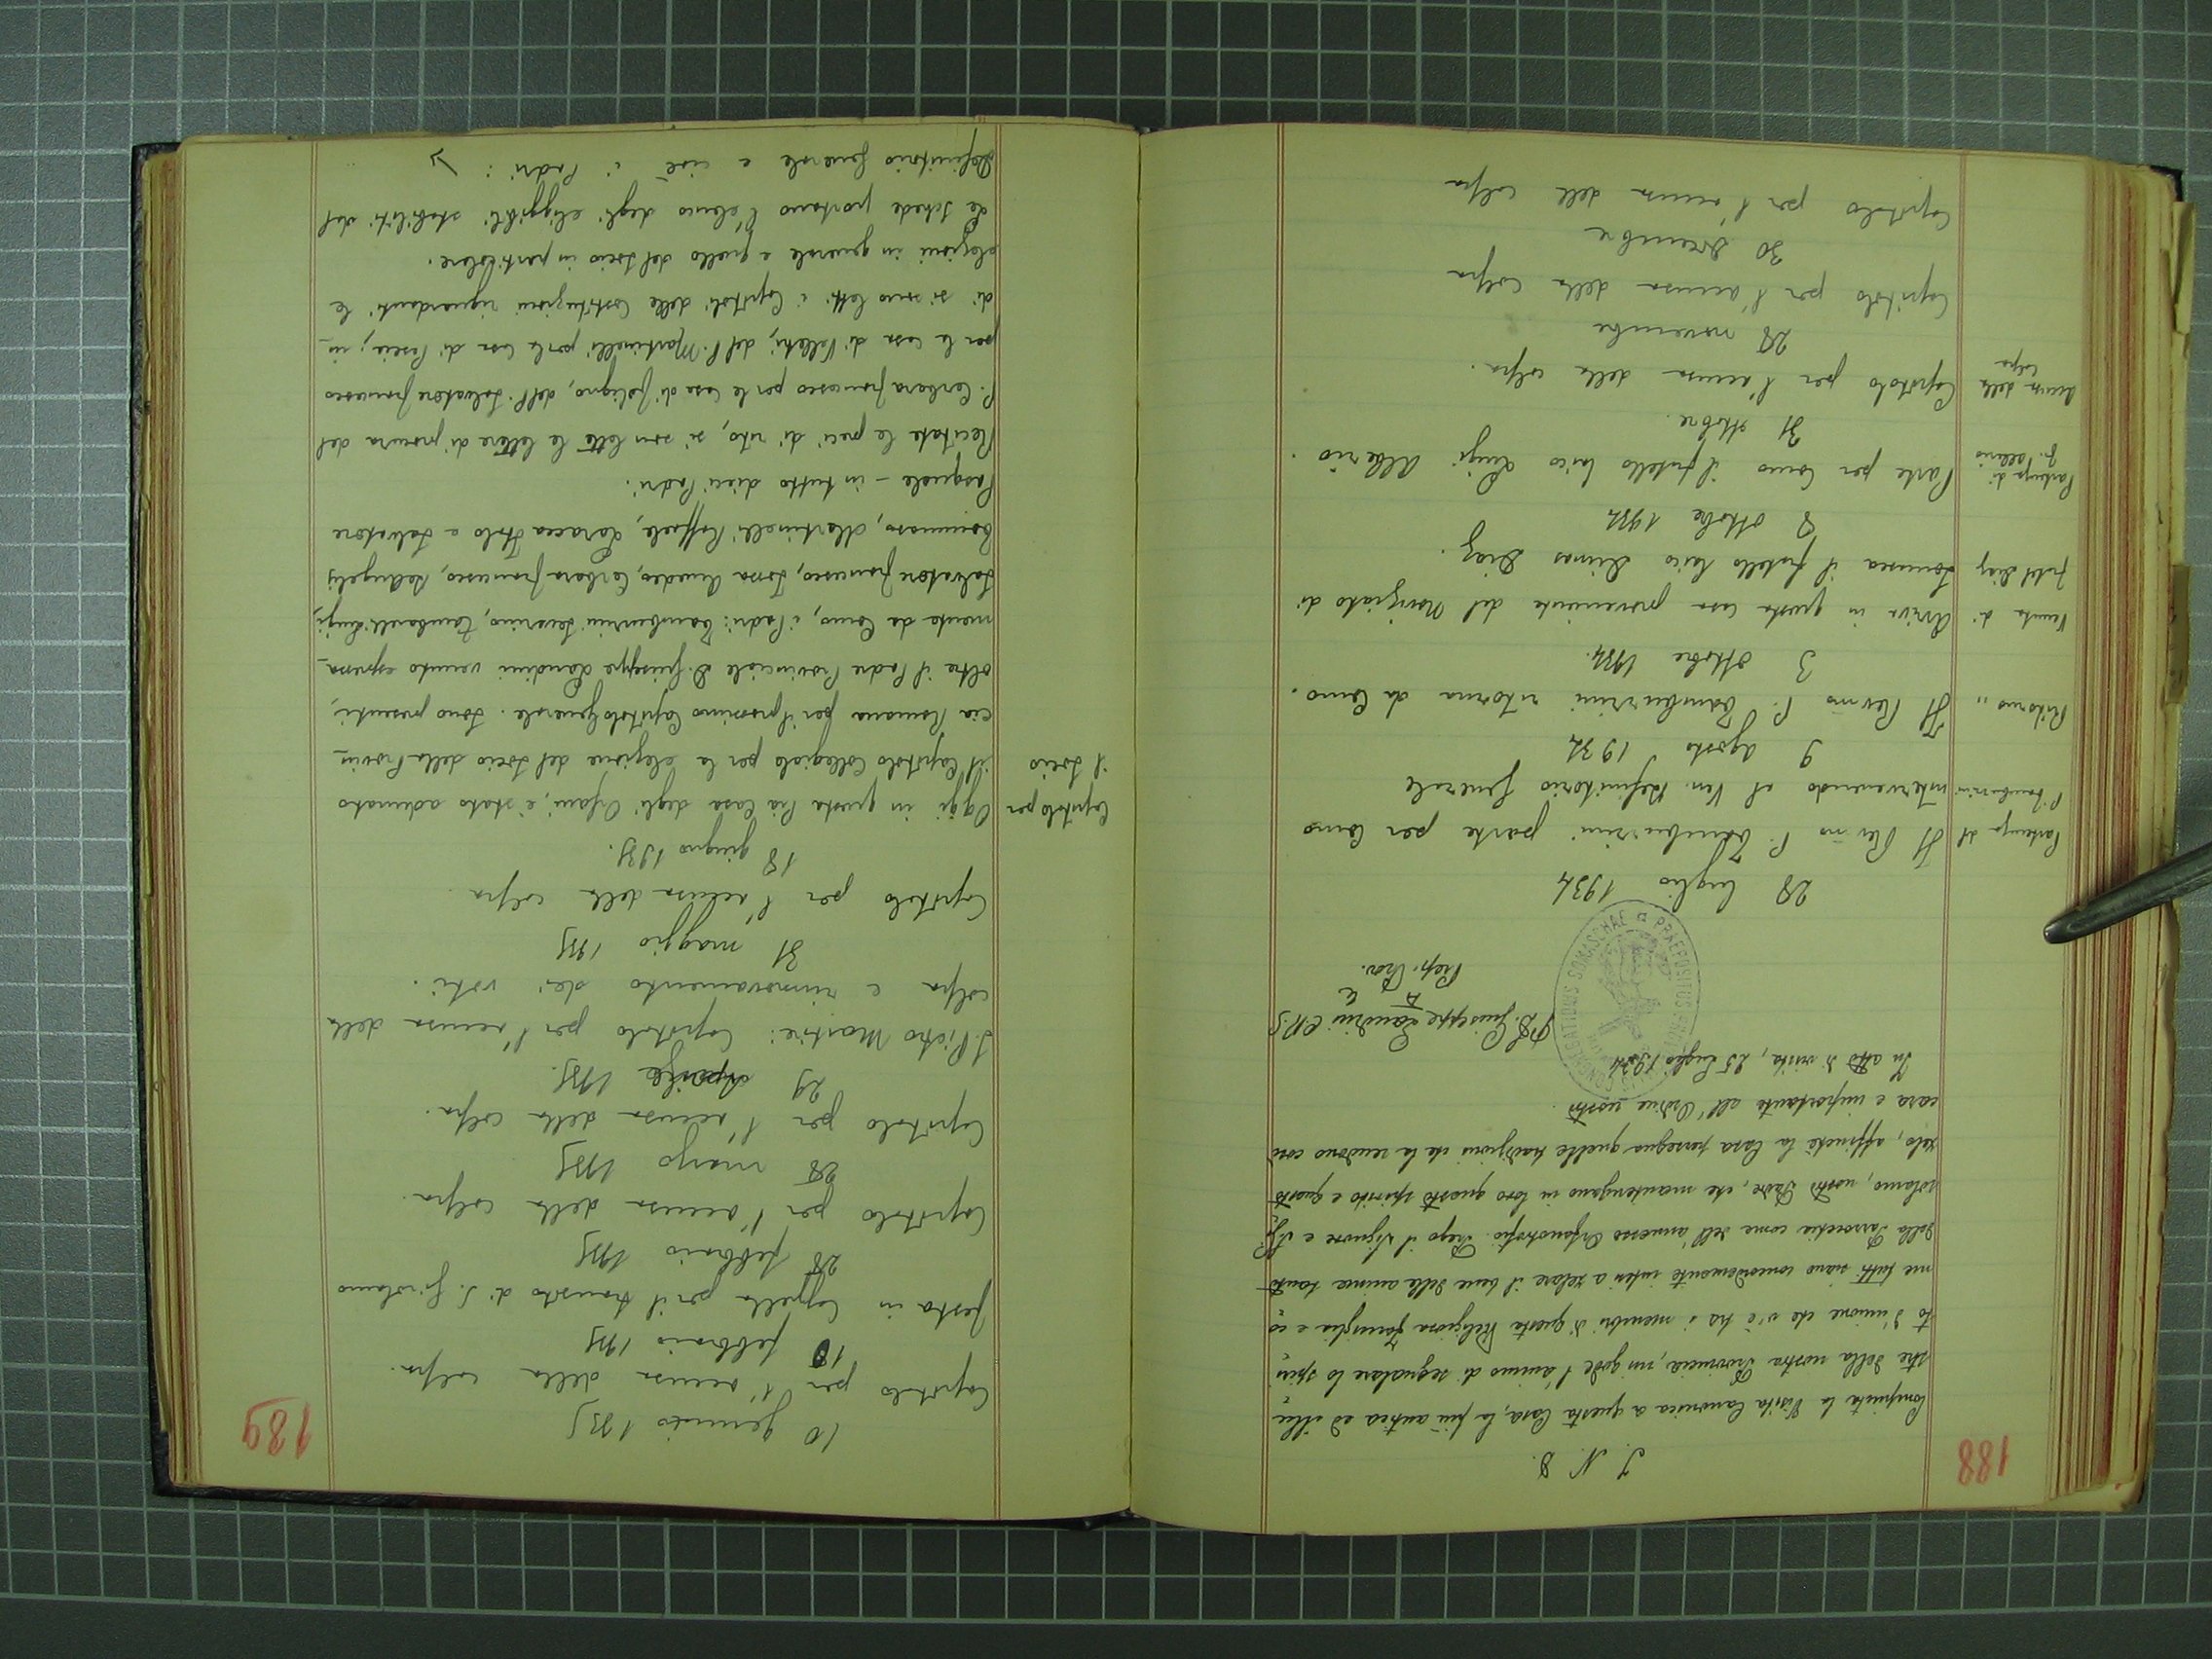 188
J. N. D.
Compiuta la Visita Canonica a questa Casa, la più antica ed illu-
stre della nostra Provincia, mi gode l'animo di segnalare lo spiri-
to d'unione che v'è tra i membri di questa Religiosa Famiglia e co-
me tutti siano concordemente intesi a zelare il bene delle anime tanto
della Parrocchia come dell'annesso Orfanotrofio. Prego il Signore e S. Gi-
rolamo, nostro Padre, che mantengano in loro questo spirito e questo
zelo, affinchè la Casa persegua quelle tradizioni che la rendono così
cara e importante all'Ordine nostro.
In atto di visita, 25 Luglio 1934
P. D. Giuseppe Landini C.R.S.
Prep. Prov.le
CONGREGATIONIS SOMASCHAE ✩ PRAEPOSITUS
28 luglio 1934
Partenza del P. Tamburrini
Il Rev.mo P. Tamburrini parte per Como
intervenendo al Ven. Definitorio Generale
9 agosto 1934
Ritorno "
Il Rev.mo P. Tamburrini ritorna da Como.
3 ottobre 1934.
Venuta di fratel Diaz
Arriva in questa casa proveniente dal Noviziato di
Somasca il fratello laico Dimas Diaz.
8 ottobre 1934
Partenza di fr. Allerio
Parte per Como il fratello laico Luigi Allerio.
31 ottobre.
Accusa della colpa
Capitolo per l'accusa della colpa.
28 novembre
Capitolo per l'accusa della colpa
30 Dicembre
Capitolo per l'accusa della colpa
189
10 gennaio 1935
Capitolo per l'accusa della colpa.
10 febbraio 1935
Festa in Cappella per il transito di S. Girolamo
28 febbraio 1935
Capitolo per l'accusa della colpa.
28 marzo 1935
Capitolo per l'accusa della colpa.
29 Aprile 1935.
S. Pietro Martire: Capitolo per l'accusa della
colpa e rinnovamento dei voti.
31 maggio 1935
Capitolo per l'accusa della colpa.
18 giugno 1935.
Capitolo per il Socio
Oggi in questa Pia Casa degli Orfani, è stato adunato
il Capitolo Collegiale per la elezione del Socio della Provin-
cia Romana per il prossimo Capitolo Generale. Sono presenti,
oltre il Padre Provinciale D. Giuseppe Landini venuto espressa-
mente da Como, i Padri: Tamburrini Severino, Zambarelli Luigi,
Salvatore Francesco, Jossa Amedeo, Cerbara Francesco, DeAngelis
Tommaso, Martinelli Raffaele, Laracca Italo e Salvatore
Pasquale - in tutto dieci Padri.
Recitate le preci di rito, si son lette le lettere di procura del
P. Cerbara Francesco per la Casa di Foligno, del P. Salvatore Francesco
per la casa di Velletri, del P. Martinelli per la Casa di Pescia; in-
di si sono letti i Capitoli delle Costituzioni riguardanti le
elezioni in generale e quello del Socio in particolare.
Le schede portano l'elenco degli eliggibli stabiliti dal
Definitorio Generale e cioè i Padri: